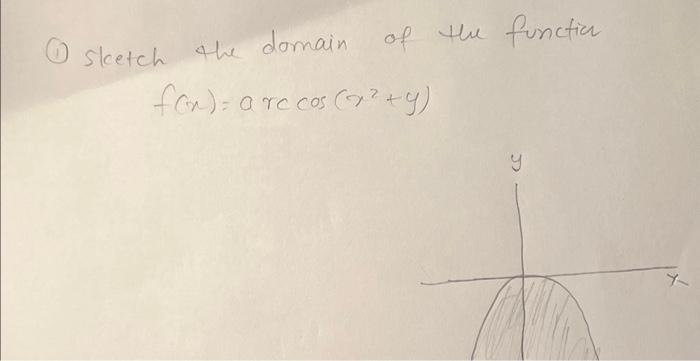 ① sketch the domain of the function
f(x) = arccos(x²+y)
y
x